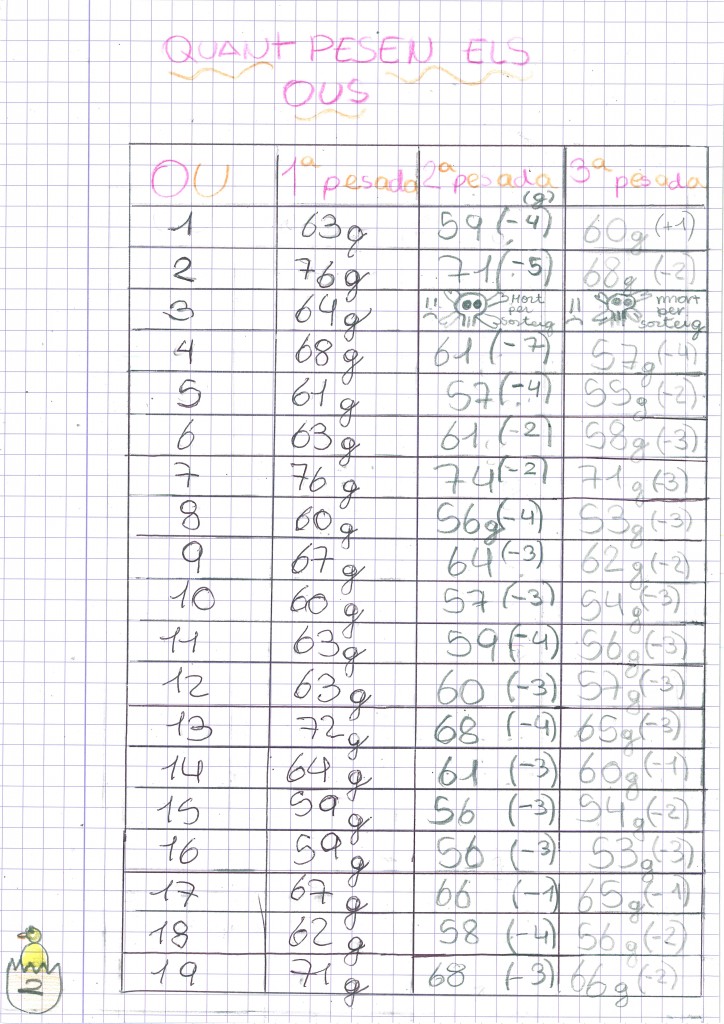 QUANT PESEN ELS
OUS
OU 1ª pesada 2ª pesada (g) 3ª pesada
1 63g 59 (-4) 60g (+1)
2 76g 71 (-5) 68g (-2)
3 64g !! Mort per sorteig !! mort per sorteig
4 68g 61 (-7) 57g (-4)
5 61g 57 (-4) 55g (-2)
6 63g 61 (-2) 58g (-3)
7 76g 74 (-2) 71g (-3)
8 60g 56g (-4) 53g (-3)
9 67g 64 (-3) 62g (-2)
10 60g 57 (-3) 54g (-3)
11 63g 59 (-4) 56g (-3)
12 63g 60 (-3) 57g (-3)
13 72g 68 (-4) 65g (-3)
14 64g 61 (-3) 60g (-1)
15 59g 56 (-3) 54g (-2)
16 59g 56 (-3) 53g (-3)
17 67g 66 (-1) 65g (-1)
18 62g 58 (-4) 56g (-2)
19 71g 68 (-3) 66g (-2)
2